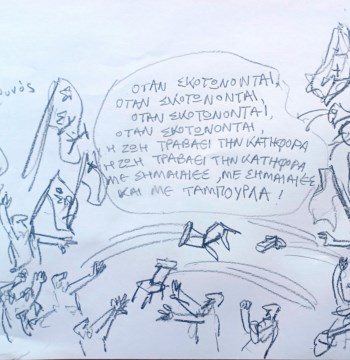 ΟΤΑΝ ΣΚΟΤΩΝΟΝΤΑΙ,
ΟΤΑΝ ΣΚΟΤΩΝΟΝΤΑΙ,
ΟΤΑΝ ΣΚΟΤΩΝΟΝΤΑΙ,
ΟΤΑΝ ΣΚΟΤΩΝΟΝΤΑΙ,
Η ΖΩΗ ΤΡΑΒΑΕΙ ΤΗΝ ΚΑΤΗΦΟΡΑ
Η ΖΩΗ ΤΡΑΒΑΕΙ ΤΗΝ ΚΑΤΗΦΟΡΑ
ΜΕ ΣΗΜΑΙΑΙΕΣ, ΜΕ ΣΗΜΑΙΑΙΕΣ
ΚΑΙ ΜΕ ΤΑΜΠΟΥΡΛΑ!